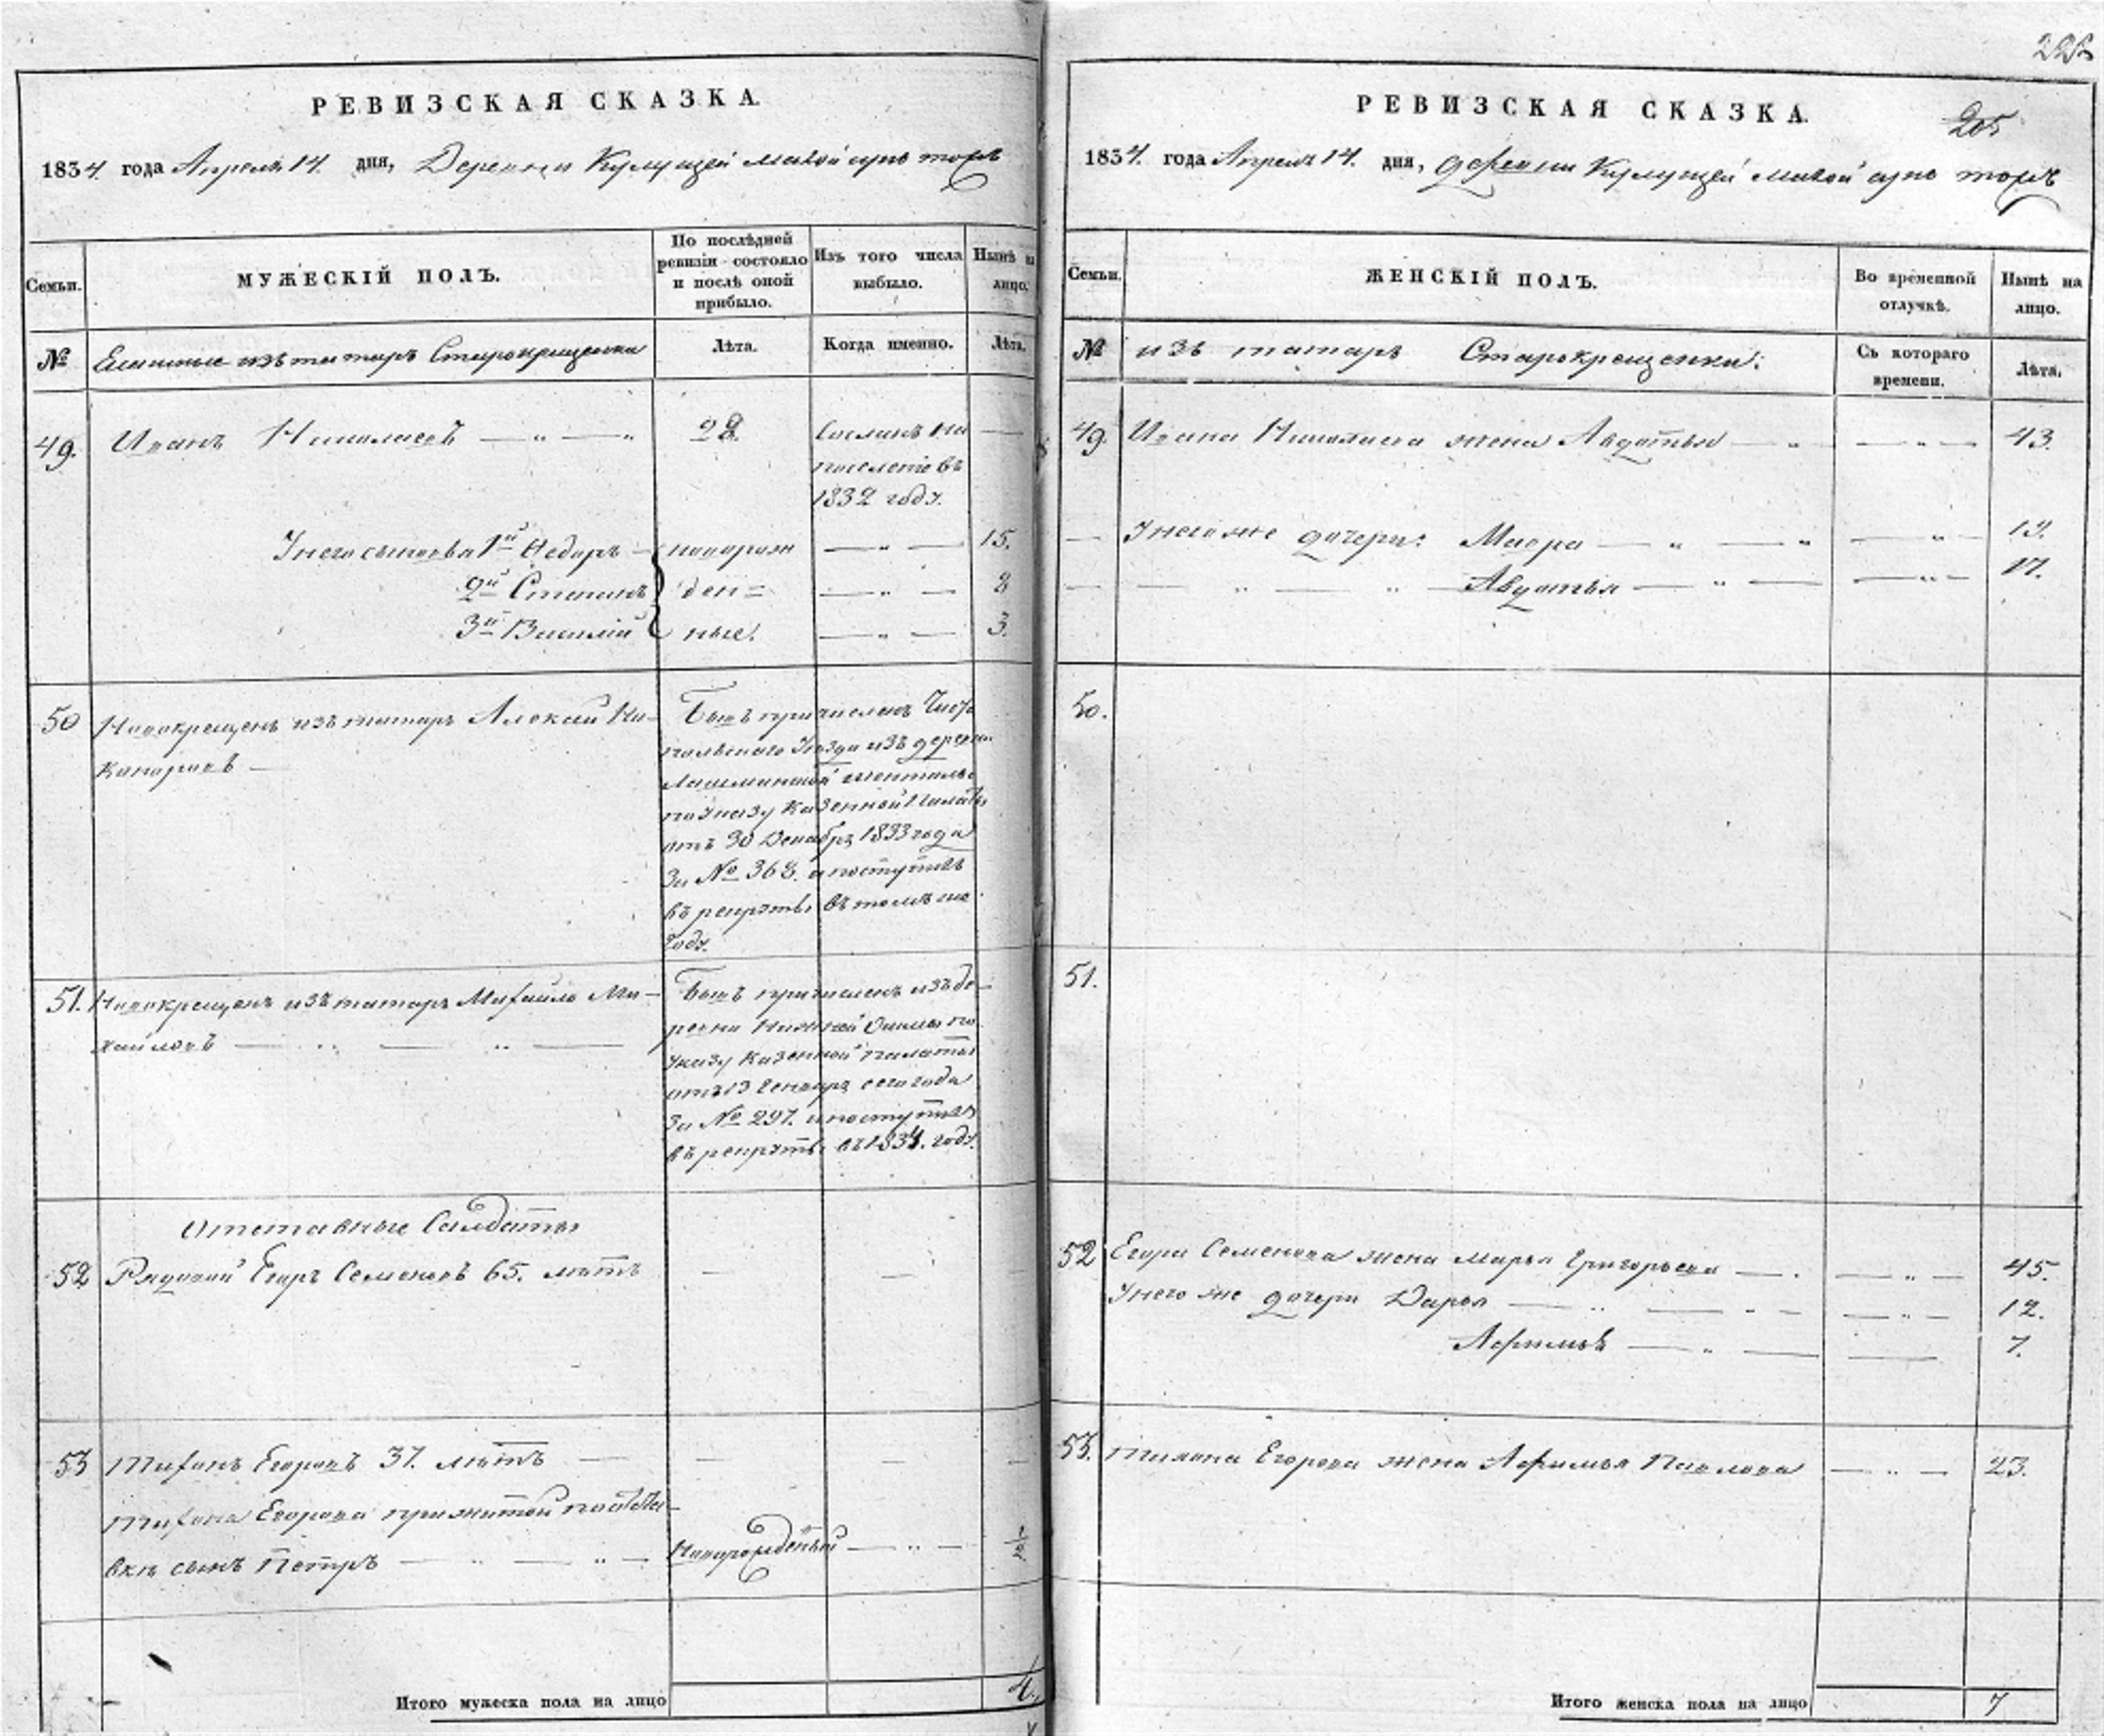 РЕВИЗСКАЯ СКАЗКА.
1834 года Апреля 14. дня, Деревни Кулущей малой тожъ
Семьи.
МУЖЕСКІЙ ПОЛЪ.
По послѣдней ревизіи состояло и послѣ оной прибыло.
Изъ того числа выбыло.
Нынѣ на лицо.
№
изъ татаръ Старокрещены
Лѣта.
Когда именно.
Лѣта.
49.
Иванъ Николаевъ
28.
Сосланъ на
поселеніе въ
1832 году.
У него сыновья 1й Федоръ
новорож
15.
2й Степанъ
ден=
8
3й Василій
ные.
3.
50
Новокрещенъ изъ татаръ Алексей Ни-
каноровъ
Былъ причисленъ Чисто
польскаго Уезда изъ деревни
по Указу Казенной Палаты
отъ 30 Декабря 1833 года
за № 368. и поступилъ
въ рекруты въ томъ же
году.
51.
Новокрещенъ изъ татаръ Михайло Ми-
хайловъ
Былъ причисленъ изъ де-
ревни Нижней Ошмы по
указу казенной палаты
отъ 13 Генваря сего года
за № 297. и поступилъ
въ рекруты въ 1834. году.
Отставные Салдаты
52
Рядовой Егоръ Семеновъ 65. летъ
53
Тихонъ Егоровъ 37. летъ
Тихона Егорова прижитой по отста-
вке сынъ Петръ
Новорожденый
½
Итого мужеска пола на лицо
4.
222
РЕВИЗСКАЯ СКАЗКА.
205
1834. года Апреля 14. дня, деревни Кулущей малой тожъ
Семьи.
ЖЕНСКІЙ ПОЛЪ.
Во временной отлучкѣ.
Нынѣ на лицо.
№
изъ татаръ Старокрещенки:
Съ котораго времени.
Лѣта.
49.
Ивана Николаева жена Авдотья
43.
У него же дочери: Мавра
Авдотья
50.
51.
52
Егора Семенова жена Марья Григорьева
45.
У него же дочери Дарья
12.
Афимья
7.
53.
Тихона Егорова жена Афимья Павлова
23.
Итого женска пола на лицо
7